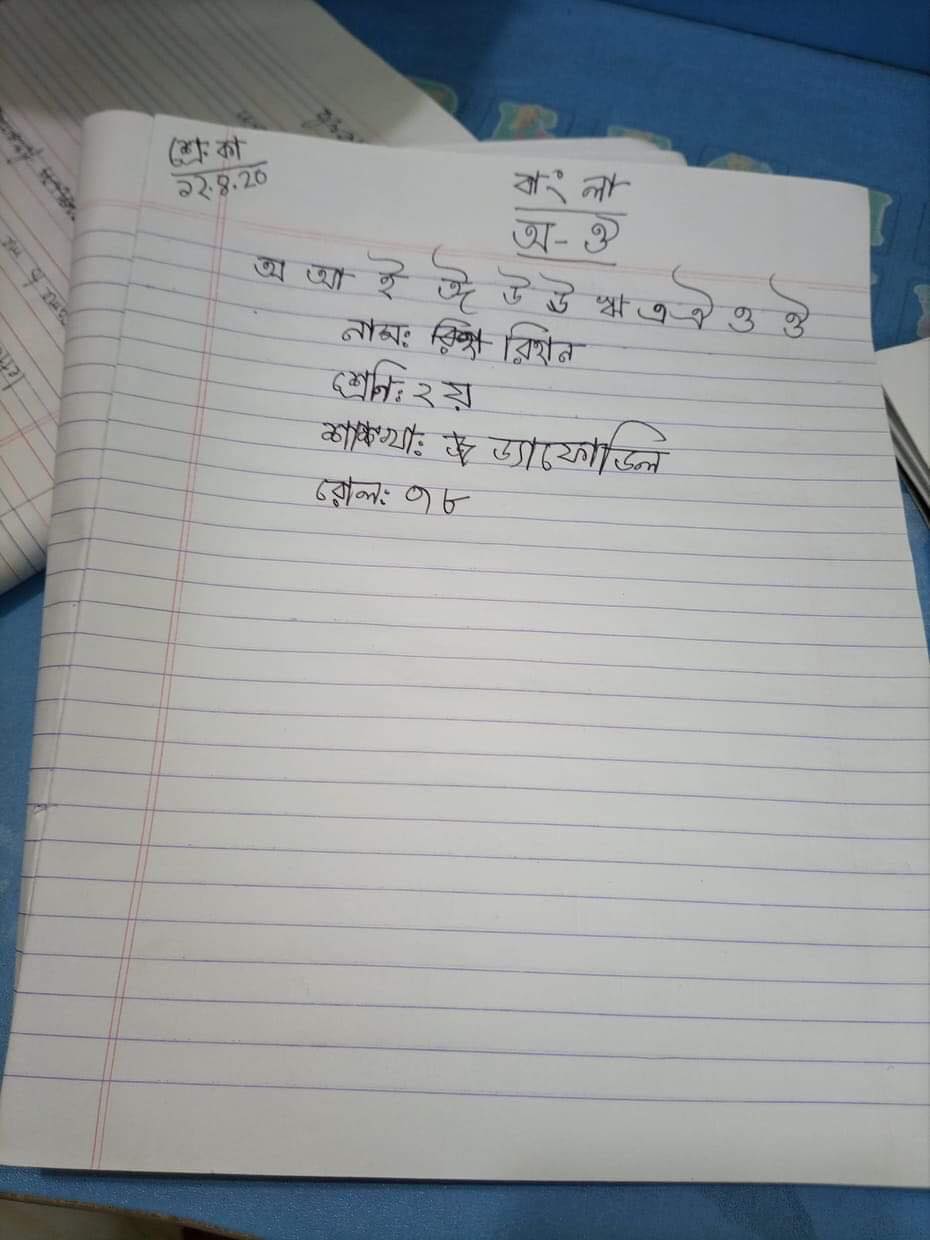 শ্রে: কা
২২.৪.২০
বাংলা
অ-ঔ
অ আ ই ঈ উ ঊ ঋ এ ঐ ও ঔ
নাম: রিহান
শ্রেনি: ২য়
শাখা: ড্যাফোডিল
রোল: ৭৮